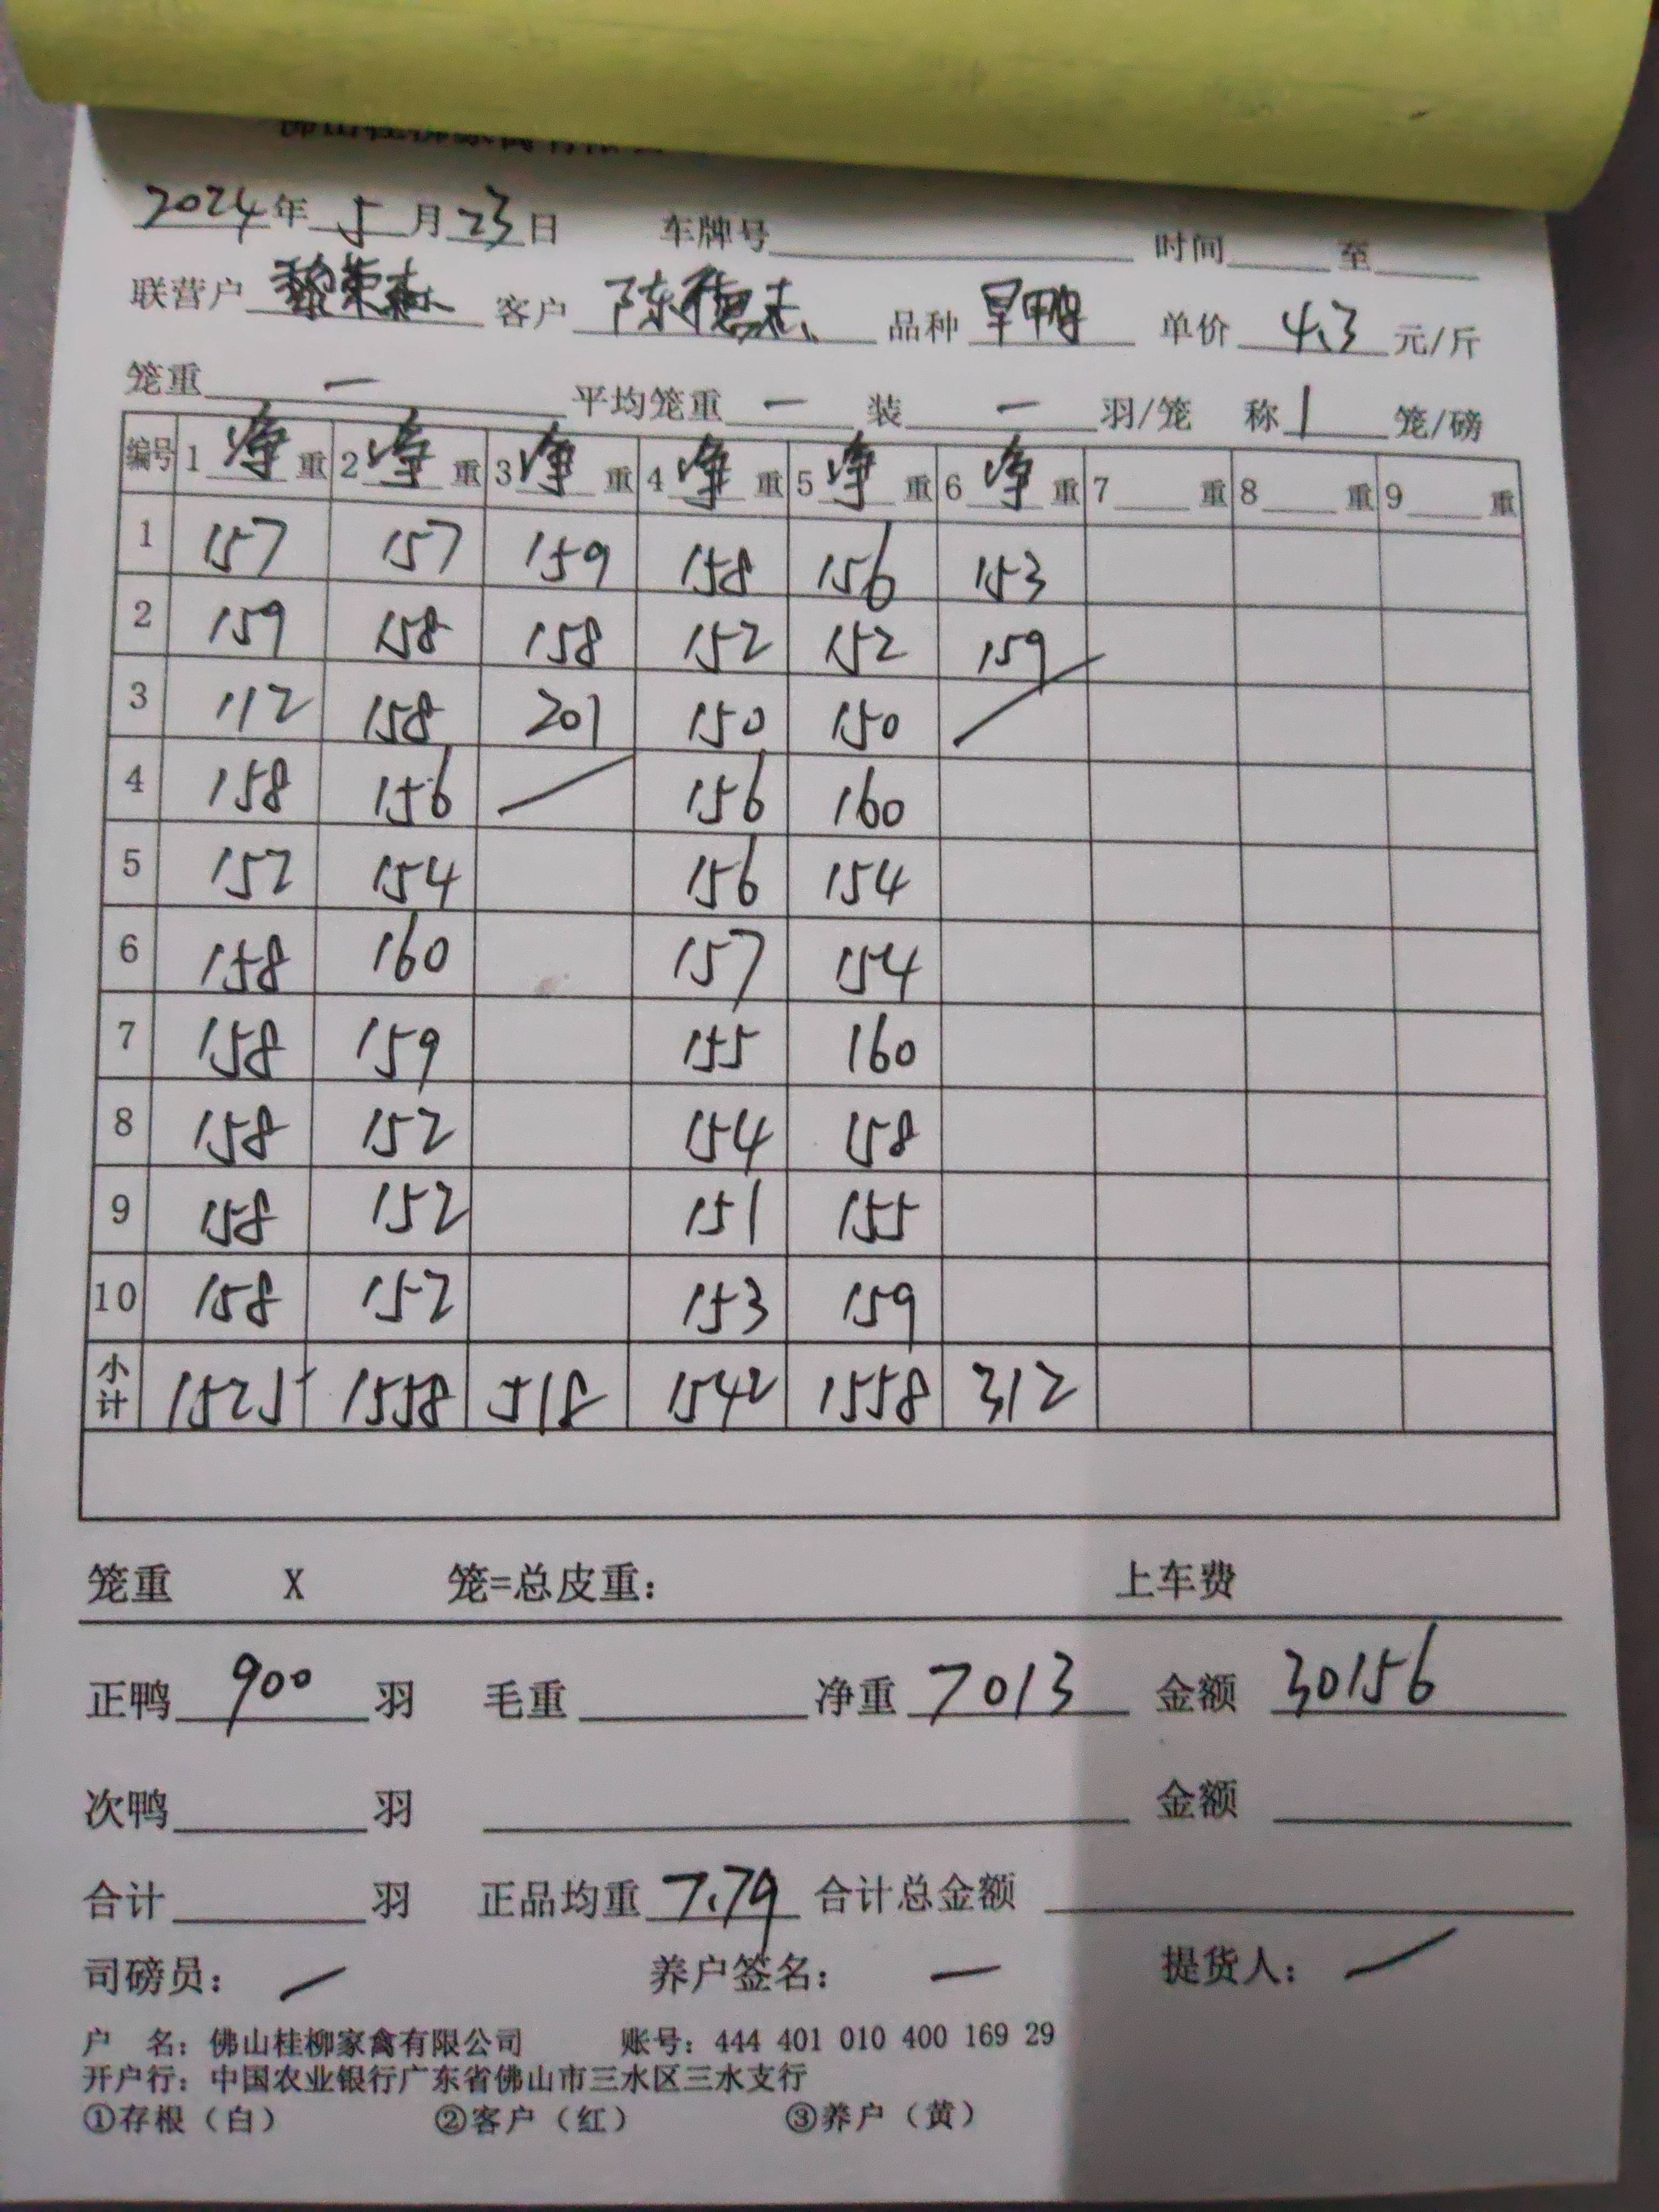 2024年5月23日 车牌号 时间 至
联营户 黎荣森 客户 陈德志 品种 旱鸭 单价 4.3 元/斤
笼重 一 平均笼重 一 装 一 羽/笼 称 1 笼/磅
编号 1 净 重 2 净 重 3 净 重 4 净 重 5 净 重 6 净 重 7 重 8 重 9 重
1 157 157 159 158 156 153
2 159 158 158 152 152 159
3 112 158 201 150 150
4 158 156 156 160
5 152 154 156 154
6 158 160 157 154
7 158 159 155 160
8 158 152 154 158
9 158 152 151 155
10 158 152 153 159
小计 1525 1558 518 1542 1558 312
笼重 X 笼=总皮重: 上车费
正鸭 900 羽 毛重 净重 7013 金额 30156
次鸭 羽 金额
合计 羽 正品均重 7.79 合计总金额
司磅员: 养户签名: 一 提货人:
户 名: 佛山桂柳家禽有限公司 账号: 444 401 010 400 169 29
开户行: 中国农业银行广东省佛山市三水区三水支行
①存根（白） ②客户（红） ③养户（黄）